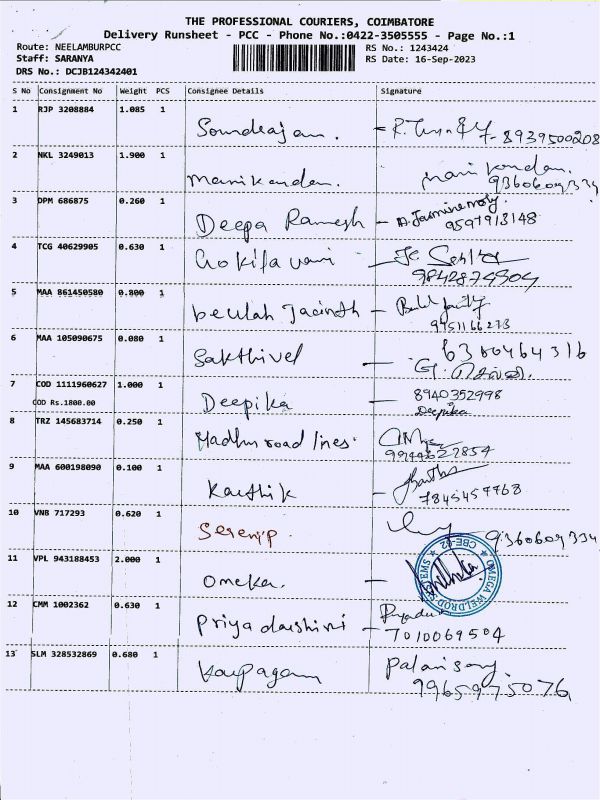 THE PROFESSIONAL COURIERS, COIMBATORE
Delivery Runsheet - PCC - Phone No.:0422-3505555 - Page No.:1
Route: NEELAMBURPCC RS No.: 1243424
Staff: SARANYA RS Date: 16-Sep-2023
DRS No.: DCJB124342401
S No Consignment No Weight PCS Consignee Details Signature
1 RJP 3208884 1.085 1
Soundrajan. - 8939500208
2 NKL 3249013 1.900 1
Manikandan. Manikandan.
3 DPM 686875 0.260 1
Deepa Ramesh - A. Jasminemoly.
9597913148
4 TCG 40629905 0.630 1
Gokilavani
9842874904
5 MAA 861450580 0.800 1
beulah Jacinth -
9451166273
6 MAA 105090675 0.080 1 6380464316
Sakthivel -
7 COD 1111960627 1.000 1
COD Rs.1800.00 Deepika - 8940352998
Deepika
8 TRZ 145683714 0.250 1
Madhu road lines.
9944622854
9 MAA 600198090 0.100 1
Karthik - 7845457768
10 VNB 717293 0.620 1
11 VPL 943188453 2.000 1
Omeka. - OMEGA WELDROD SYSTEMS ★ CBE-62 ★
12 CMM 1002362 0.630 1
Priyadarshini - 7010069504
13 SLM 328532869 0.680 1
Karpagam Palanisamy.
9965975076